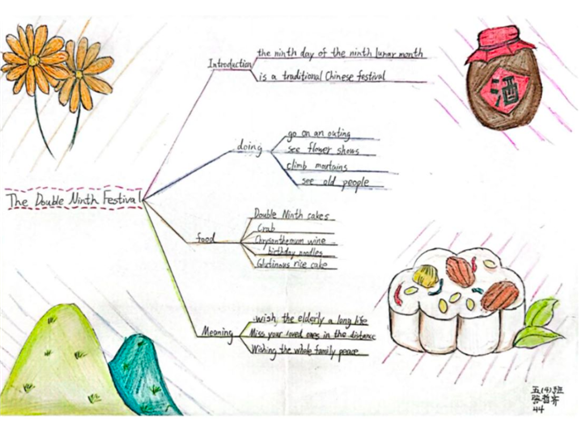 The Double Ninth Festival
Introduction
the ninth day of the ninth lunar month
is a traditional Chinese festival
doing
go on an outing
see flower shows
climb mortains
see old people
food
Double Ninth cakes
Crab
Chrysantheum wine
birthday noodles
Glutinous rice cake
Meaning
wish, the elderly a long life
Miss your loved ones in the distance
Wishing the whole family peace
酒
五(4)班
44